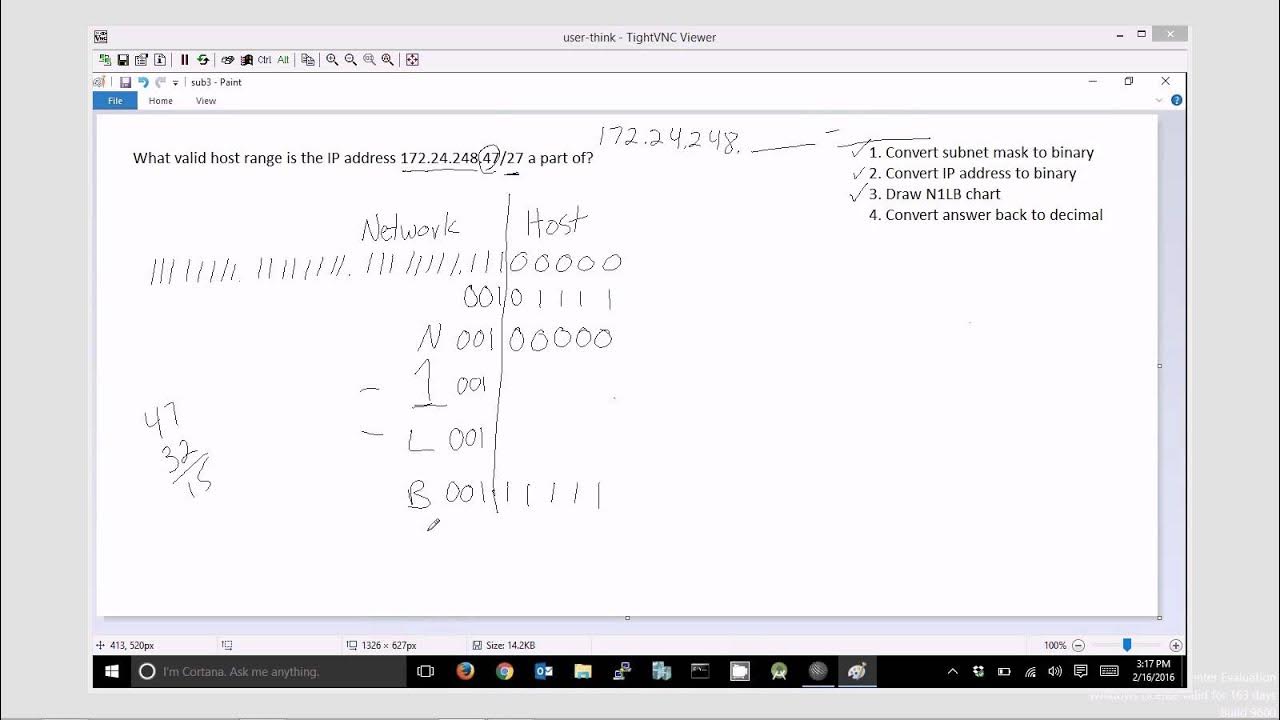 user-think - TightVNC Viewer
Ctrl Alt
sub3 - Paint
File Home View
172.24.248. ___ - ___
What valid host range is the IP address 172.24.248.47/27 a part of?
1. Convert subnet mask to binary
2. Convert IP address to binary
3. Draw N1LB chart
4. Convert answer back to decimal
Network Host
11111111.11111111.11111111.11100000
00101111
N 00100000
- 1 001
- L 001
B 00111111
47
32
15
413, 520px 1326 × 627px Size: 14.2KB 100%
I'm Cortana. Ask me anything.
3:17 PM
2/16/2016
enter Evaluation
Windows License valid for 163 days
Build 9600